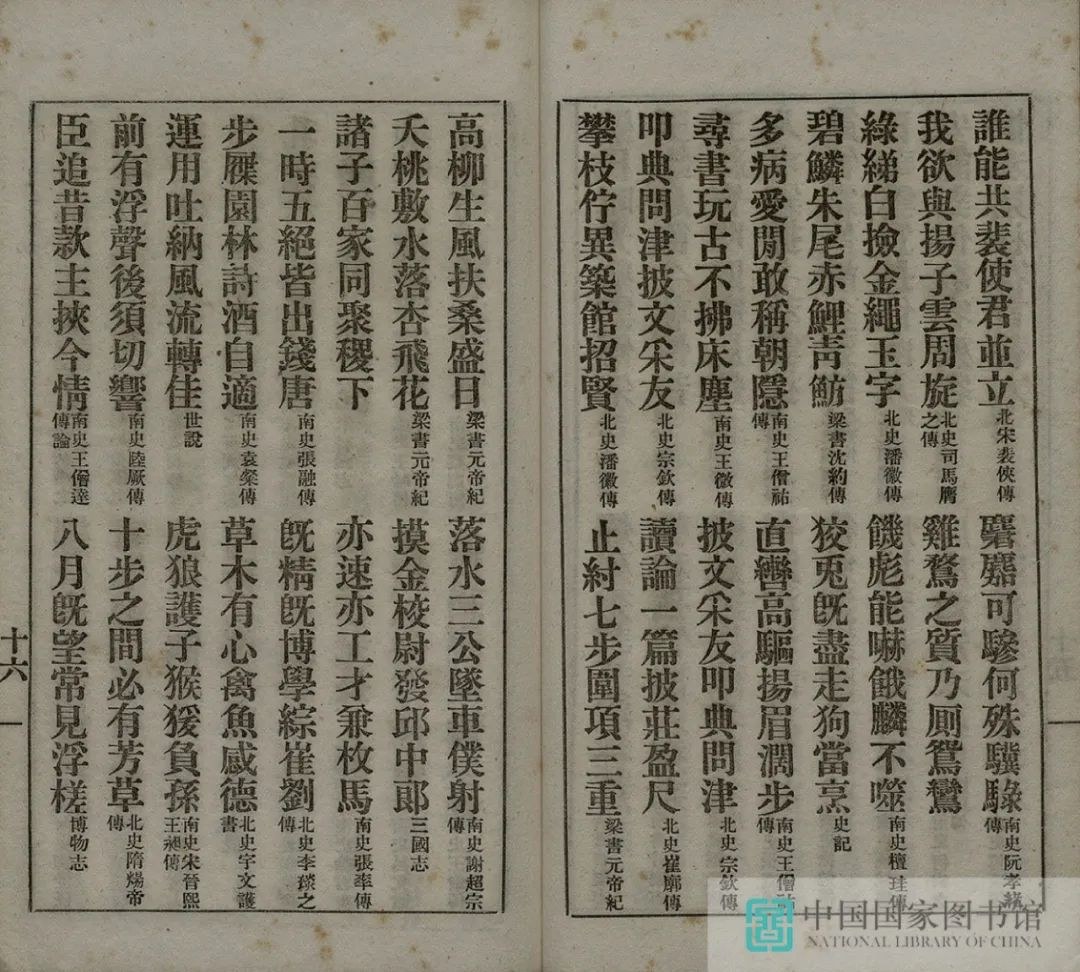 誰能共裴使君並立 北宋裴俠傳 麏麚可驂何殊驥騄 南史阮孝緒傳
我欲與揚子雲周旋 北史司馬膺之傳 雞鶩之質乃厠鴛鸞
綠綈白撿金繩玉字 北史潘徽傳 饑彪能嚇餓麟不噬 南史檀珪傳
碧鱗朱尾赤鯉靑魴 梁書沈約傳 狡兎旣盡走狗當烹 史記
多病愛閒敢稱朝隱 南史王僧祐傳 直轡高驅揚眉濶步 南史王僧祐傳
尋書玩古不拂床塵 南史王微傳 披文釆友叩典問津 北史宗欽傳
叩典問津披文釆友 北史宗欽傳 讀論一篇披莊盈尺 北史崔廓傳
攀枝佇異築館招賢 北史潘徽傳 止紂七步圍項三重 梁書元帝紀
高柳生風扶桑盛日 梁書元帝紀 落水三公墜車僕射 南史謝超宗傳
夭桃敷水落杏飛花 梁書元帝紀 摸金校尉發邱中郞 三國志
諸子百家同聚稷下 亦速亦工才兼枚馬 南史張率傳
一時五絕皆出錢唐 南史張融傳 旣精旣博學綜崔劉 北史李琰之傳
步屧園林詩酒自適 南史袁粲傳 草木有心禽魚感德 北史宇文護書
運用吐納風流轉佳 世說 虎狼護子猴猨負孫 南史宋晉熙王昶傳
前有浮聲後須切響 南史陸厥傳 十步之間必有芳草 北史隋煬帝傳
臣追昔款主挾今情 南史王僧達傳論 八月旣望常見浮槎 博物志
十六
中国国家图书馆
NATIONAL LIBRARY OF CHINA